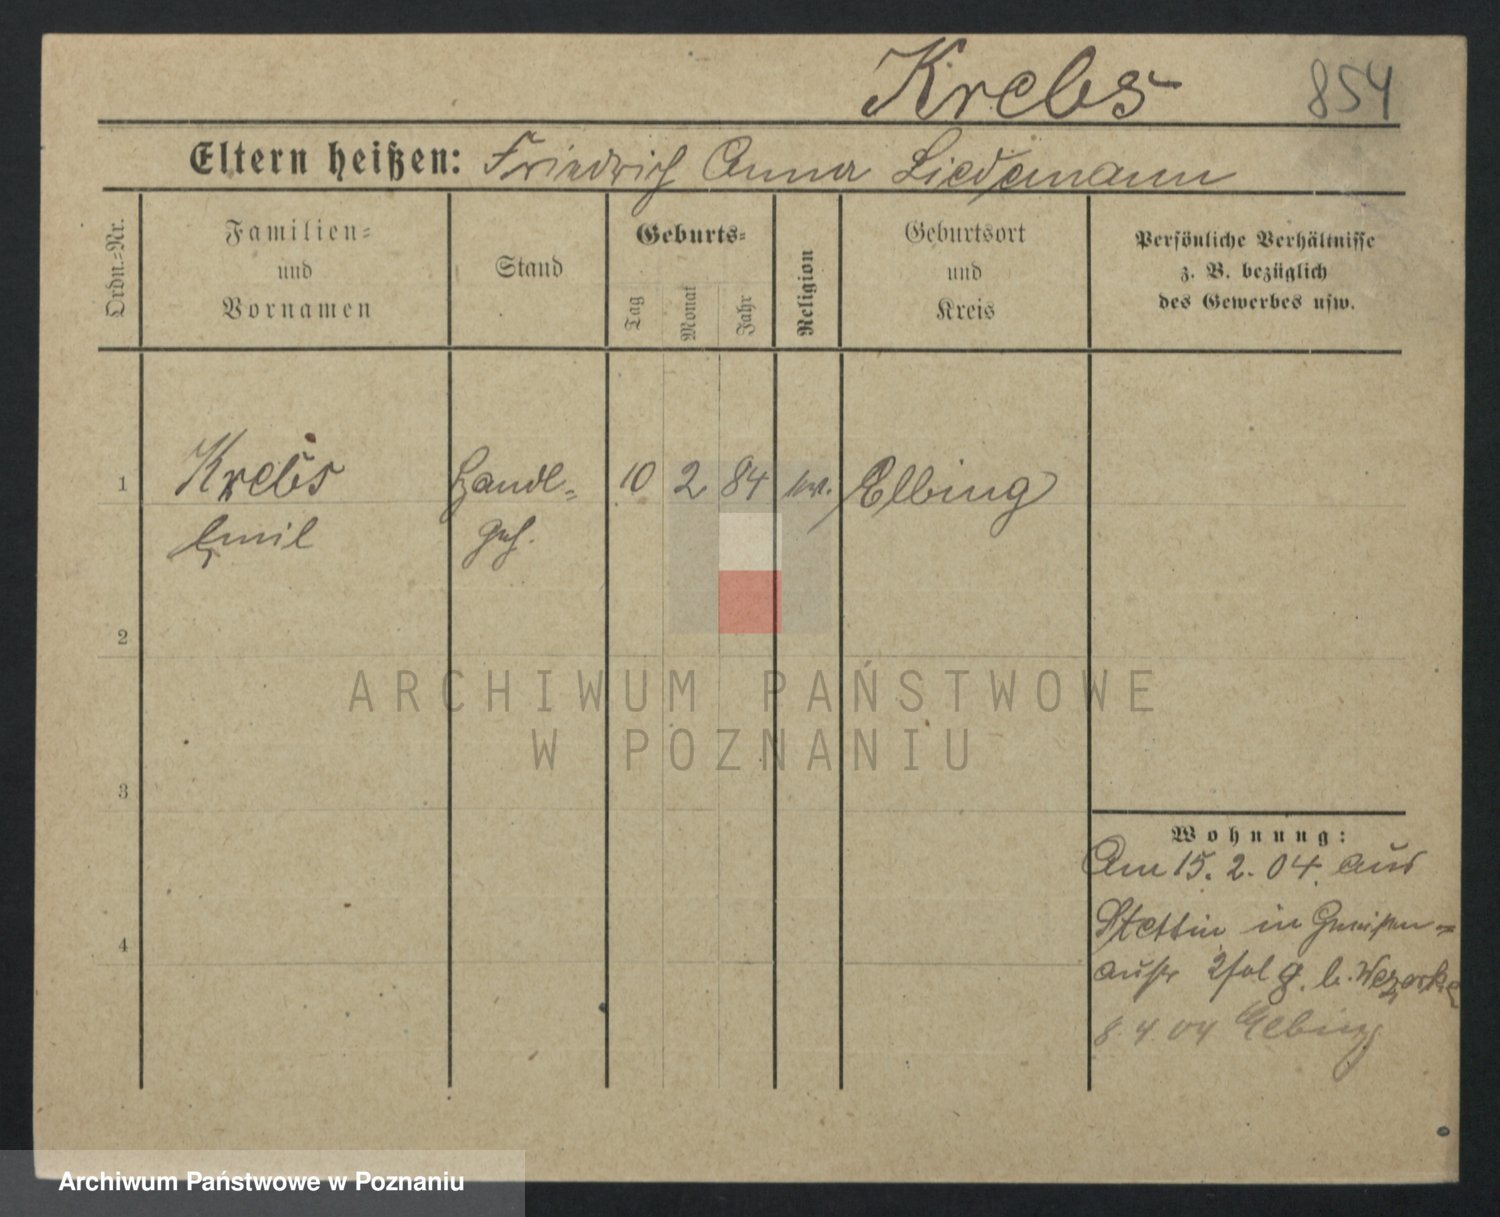 Krebs 854
Eltern heißen: Friedrich Anna Liedemann
Ordn.-Nr.
Familien-
und
Vornamen
Stand
Geburts-
Tag
Monat
Jahr
Religion
Geburtsort
und
Kreis
Persönliche Verhältnisse
z. B. bezüglich
des Gewerbes usw.
1 Krebs Handl- 10 2 84 ev. Elbing
Emil Geh.
2
3
4
ARCHIWUM PAŃSTWOWE
W POZNANIU
Wohnung:
Am 15. 2. 04. aus
Stettin in Gneisen-
austr b.
8. 4. 04 Elbing
Archiwum Państwowe w Poznaniu